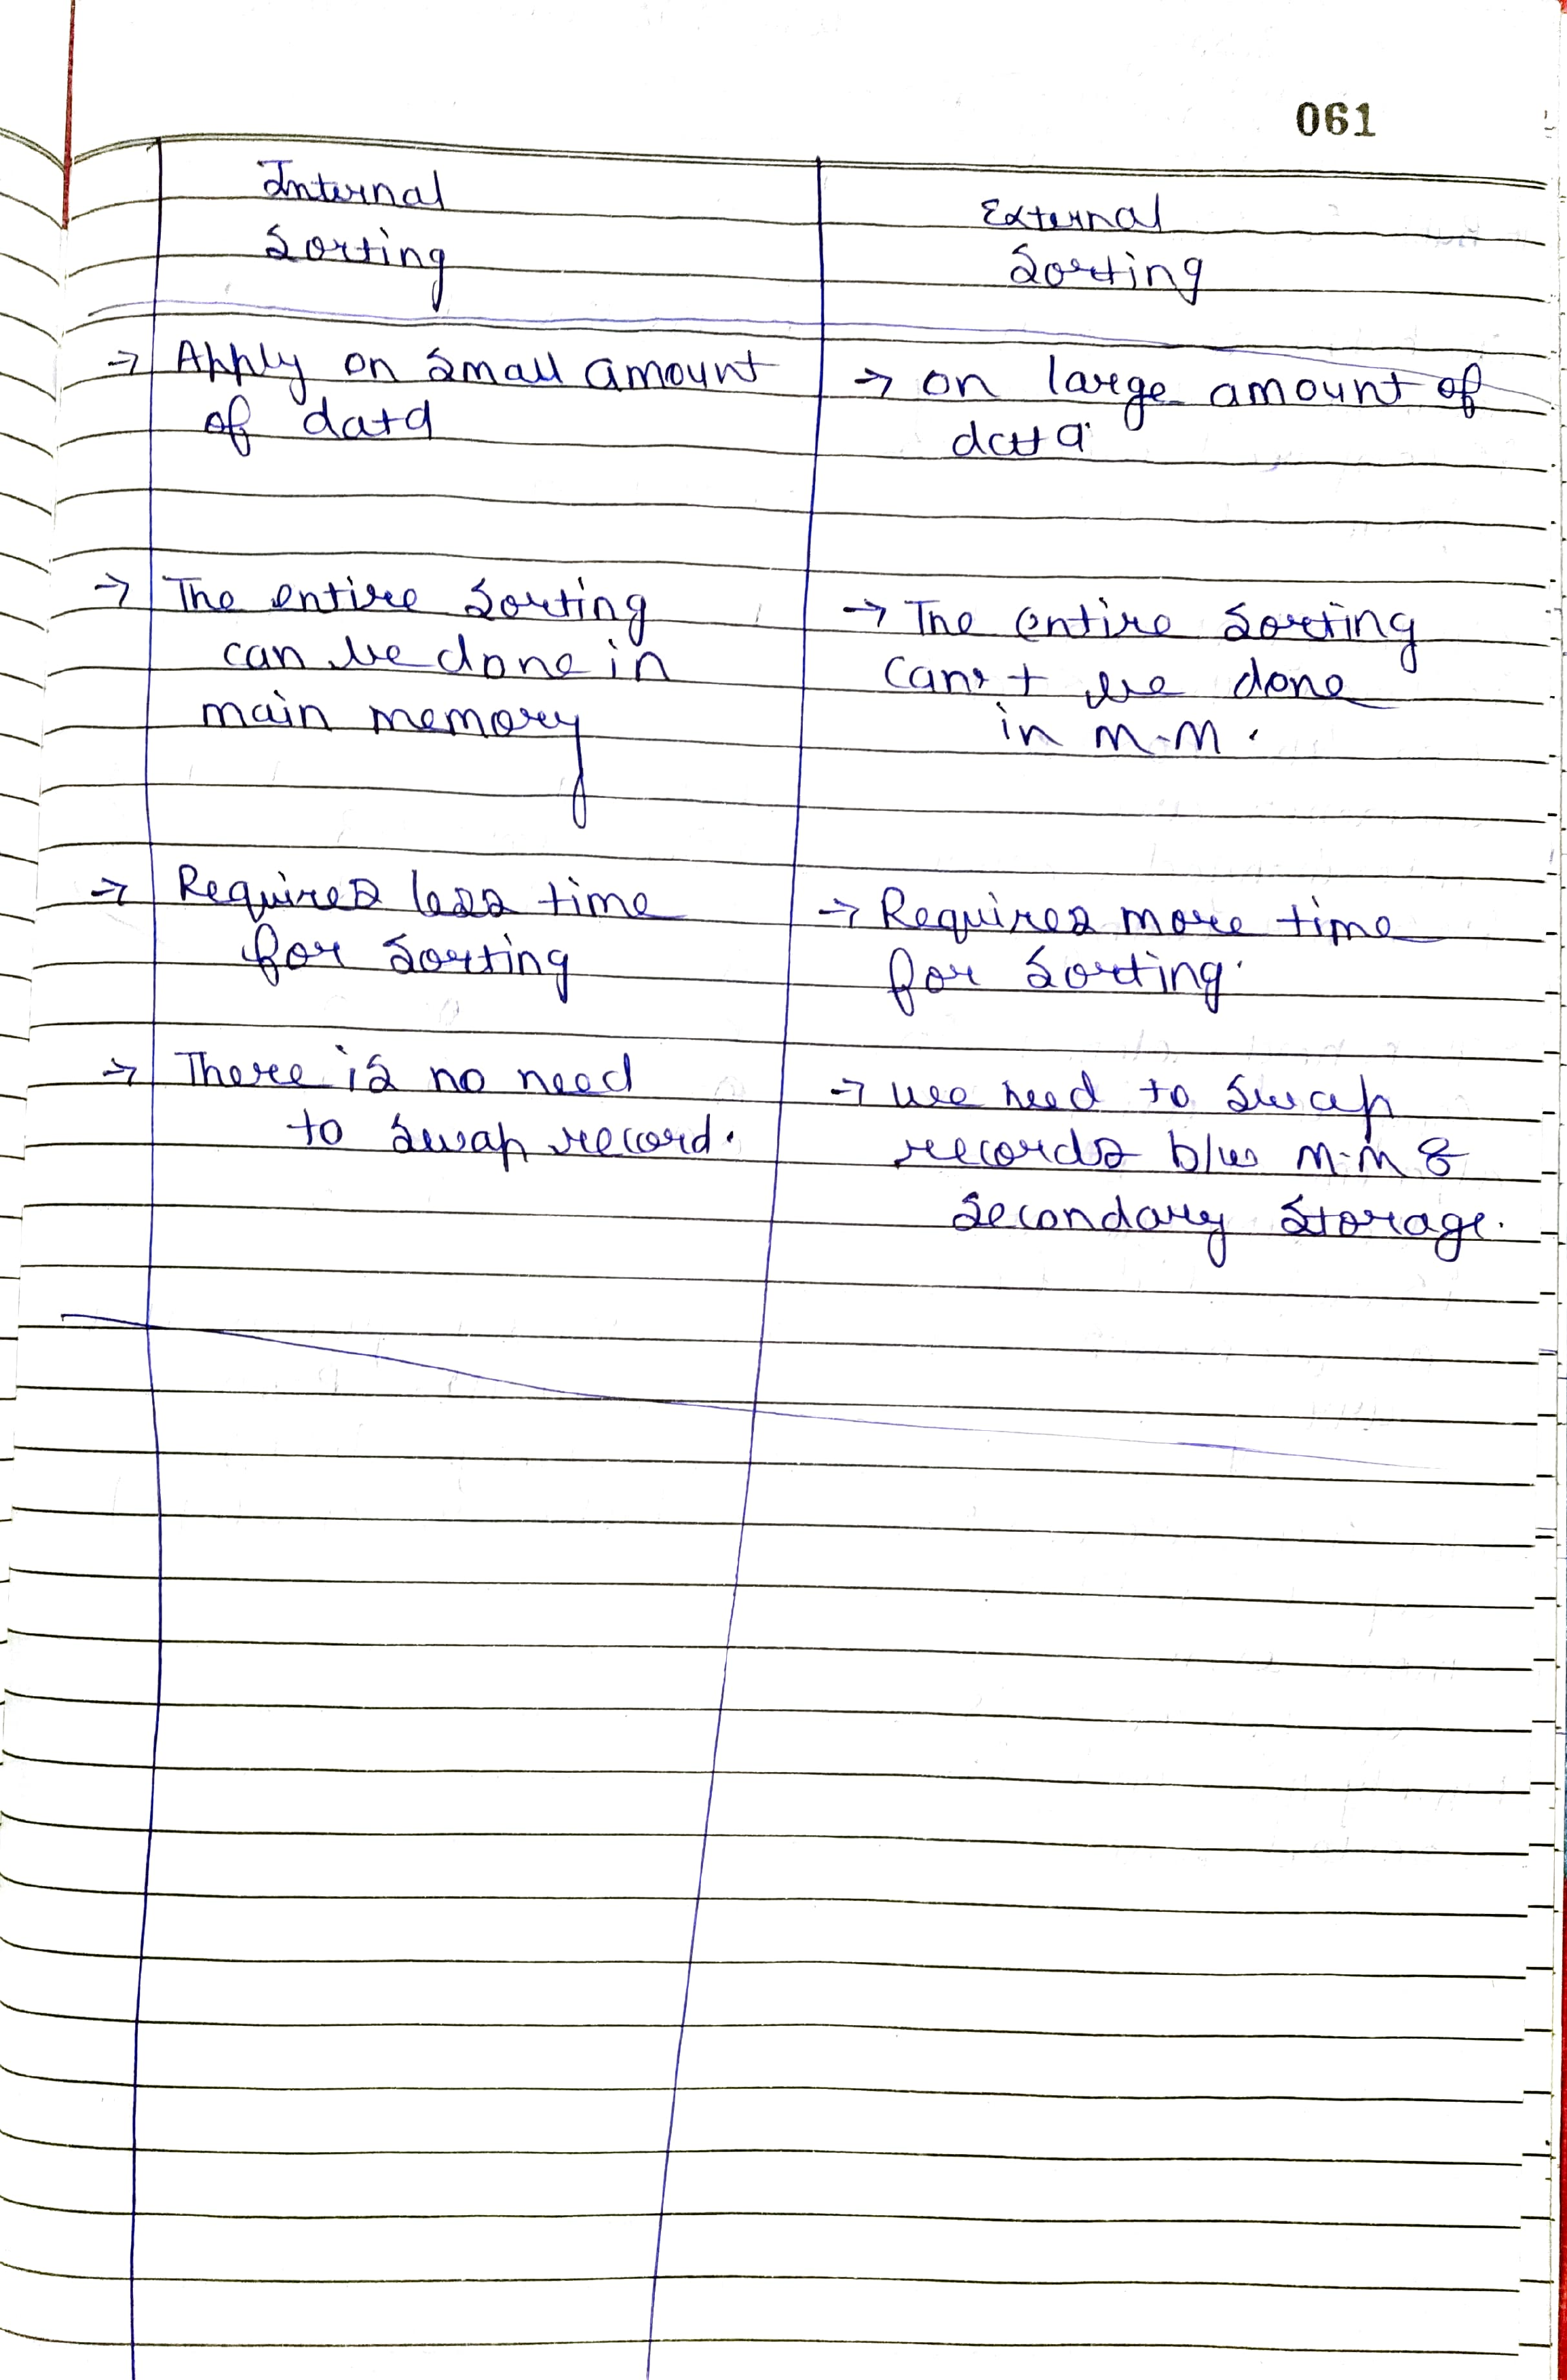 061
Internal
Sorting
External
Sorting
→ Apply on small amount
of data
→ on large amount of
data
→ The entire sorting
can be done in
main memory
→ The entire sorting
can't be done
in M.M.
→ Requires less time
for sorting
→ Requires more time
for sorting.
→ There is no need
to swap record.
→ we need to swap
records b/w M.M &
Secondary Storage.